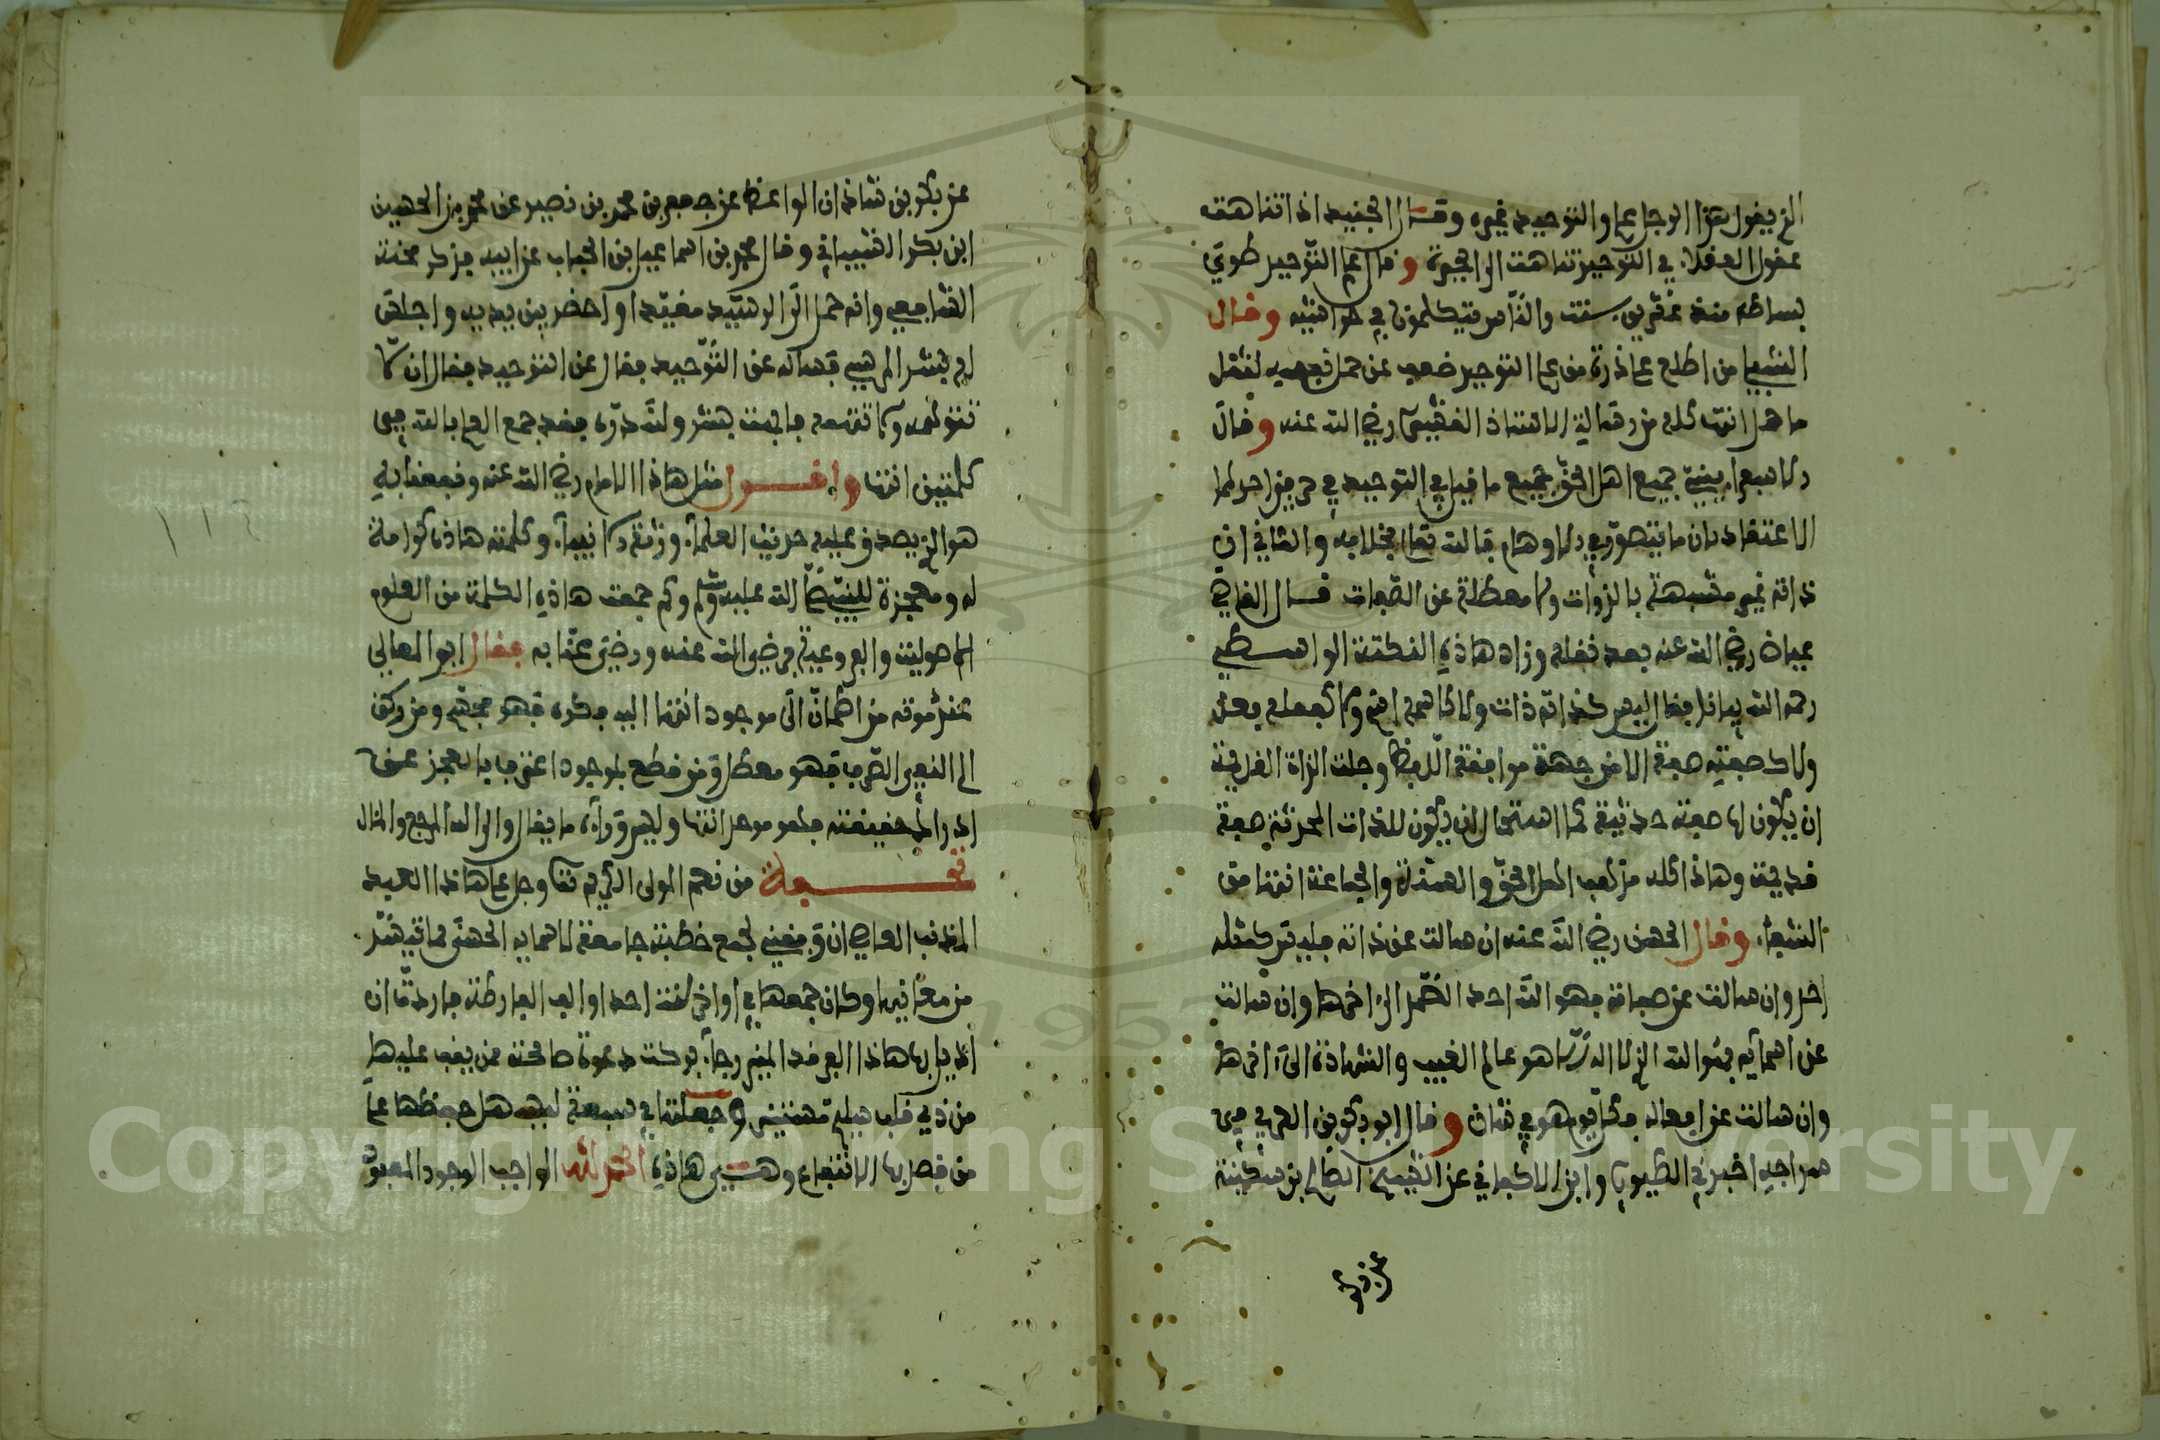 الذي يقول هذا الرجل علم والتوحيد غيره وقال الجنيد اذا تناهت
عقول العقلاء في التوحيد تناهت الى الحيرة وقال علم التوحيد طوي
بساطه منذ عشرين سنة والناس يتكلمون في حواشيه وقال
الشبلي من اطلع على ذرة من علم التوحيد ضعف عن حمل لثقل
ما حمل انتهى كله من رسالة الاستاذ القشيري رضي الله عنه وقال
جميع اهل الحق جميع ما قيل في التوحيد في
الاعتقاد بان ما يتصور في الاوهام فالله تعالى بخلافه والثاني ان
ذاته غير مشبهة بالذوات ولا معطلة عن الصفات قال القاضي
عياض رضي الله عنه بعد نقله وزاد هاذه النكتة الواسطي
رحمه الله بيانا فقال ليس كذاته ذات ولا كاسمه اسم ولا كفعله فعل
ولا كصفته صفة الا من جهة موافقة اللفظ وجلت الذات القديمة
ان يكون لها صفة حديثة كما استحال ان يكون للذات المحدثة صفة
قديمة وهاذا كله مذهب اهل الحق والسنة والجماعة انتهى من
الشفاء وقال الحسن رضي الله عنه ان سالت عن ذاته فليس كمثله
احد وان سالت عن صفاته فهو الله احد الصمد الى اخرها وان سالت
عن اسمايه فهو الله الذي لا اله الا هو عالم الغيب والشهادة الى اخرها
وان سالت عن افعاله فكل يوم هو في شان وقال ابو بكر بن العربي في
سراجه اخبرني الطيوري وابن الاكفاني عن
عن بكر
عن بكر بن شاذان الواعظ عن جعفر بن محمد بن نصير عن محمد بن الحسين
ابن بكر الشيباني وقال محمد بن اسماعيل بن الحباب عن ابيه فذكر محنة
الشافعي وانه حمل الى الرشيد مقيدا واحضر بين يديه
بشر المريسي فساله عن التوحيد فقال عن التوحيد فقال ان لا
تتوهمه ولا تتهمه فابهت بشر ولله دره فقد جمع العلم بالله في
كلمتين انتهى واقول مثل هاذا الامام رضي الله عنه ونفعنا به
هو الذي يصدق عليه حديث العلماء ورثة الانبياء وكلمته هاذه كرامة
له ومعجزة للنبي صلى الله عليه وسلم وكم جمعت هاذه الكلمة من العلوم
الاصولية والفروعية فرضي الله عنه ورضي عنا به فقال ابو المعالي
من اطمان الى موجود انتهى اليه فكره فهو مجسم ومن ركن
الى النفي الصرف فهو معطل ومن قطع بموجود اعترف بالعجز عن
ادراك حقيقته فهو موحد انتهى وليس وراء ما يقال والى الله المرجع والمئال
تتمة من نعم المولى الكريم تعالى وجل على هاذا العبد
المذنب العاصي ان وفقني لجمع خطبة جامعة لاسمايه الحسنى
من معانيها وكان جمعها في اواخر سنة احد والف الفارطة فاردت ان
اذيل بها هاذا العرفد المنير رجاء بركة دعوة صالحة ممن يقف عليها
من ذي قلب سليم وجعلتها في سبعة ليسهل حفظها على
من قصد بها الانتفاع وهي هاذه الحمد لله الواجب الوجود المعبود
Copyright © King Saud University
1957